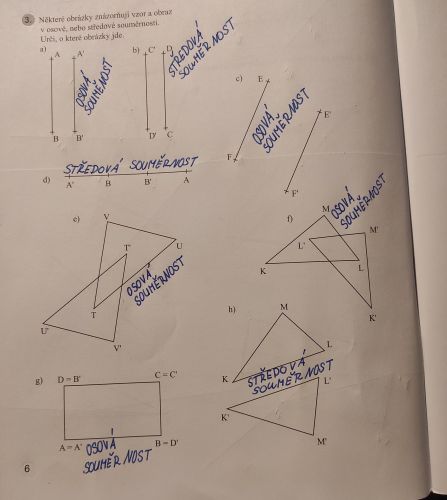 3. Některé obrázky znázorňují vzor a obraz
v osové, nebo středové souměrnosti.
Urči, o které obrázky jde.
a)
A A'
OSOVÁ
SOUMĚRNOST
B B'
b)
C' D
STŘEDOVÁ
SOUMĚRNOST
D' C
c)
E
F
OSOVÁ
SOUMĚRNOST
E'
F'
STŘEDOVÁ SOUMĚRNOST
d)
A' B B' A
e)
V
U
T'
T
U'
V'
OSOVÁ
SOUMĚRNOST
f)
M
OSOVÁ
SOUMĚRNOST
M'
L'
K
L
K'
g)
D = B' C = C'
A = A' B = D'
OSOVÁ
SOUMĚRNOST
h)
M
L
K
STŘEDOVÁ
SOUMĚRNOST
L'
K'
M'
6